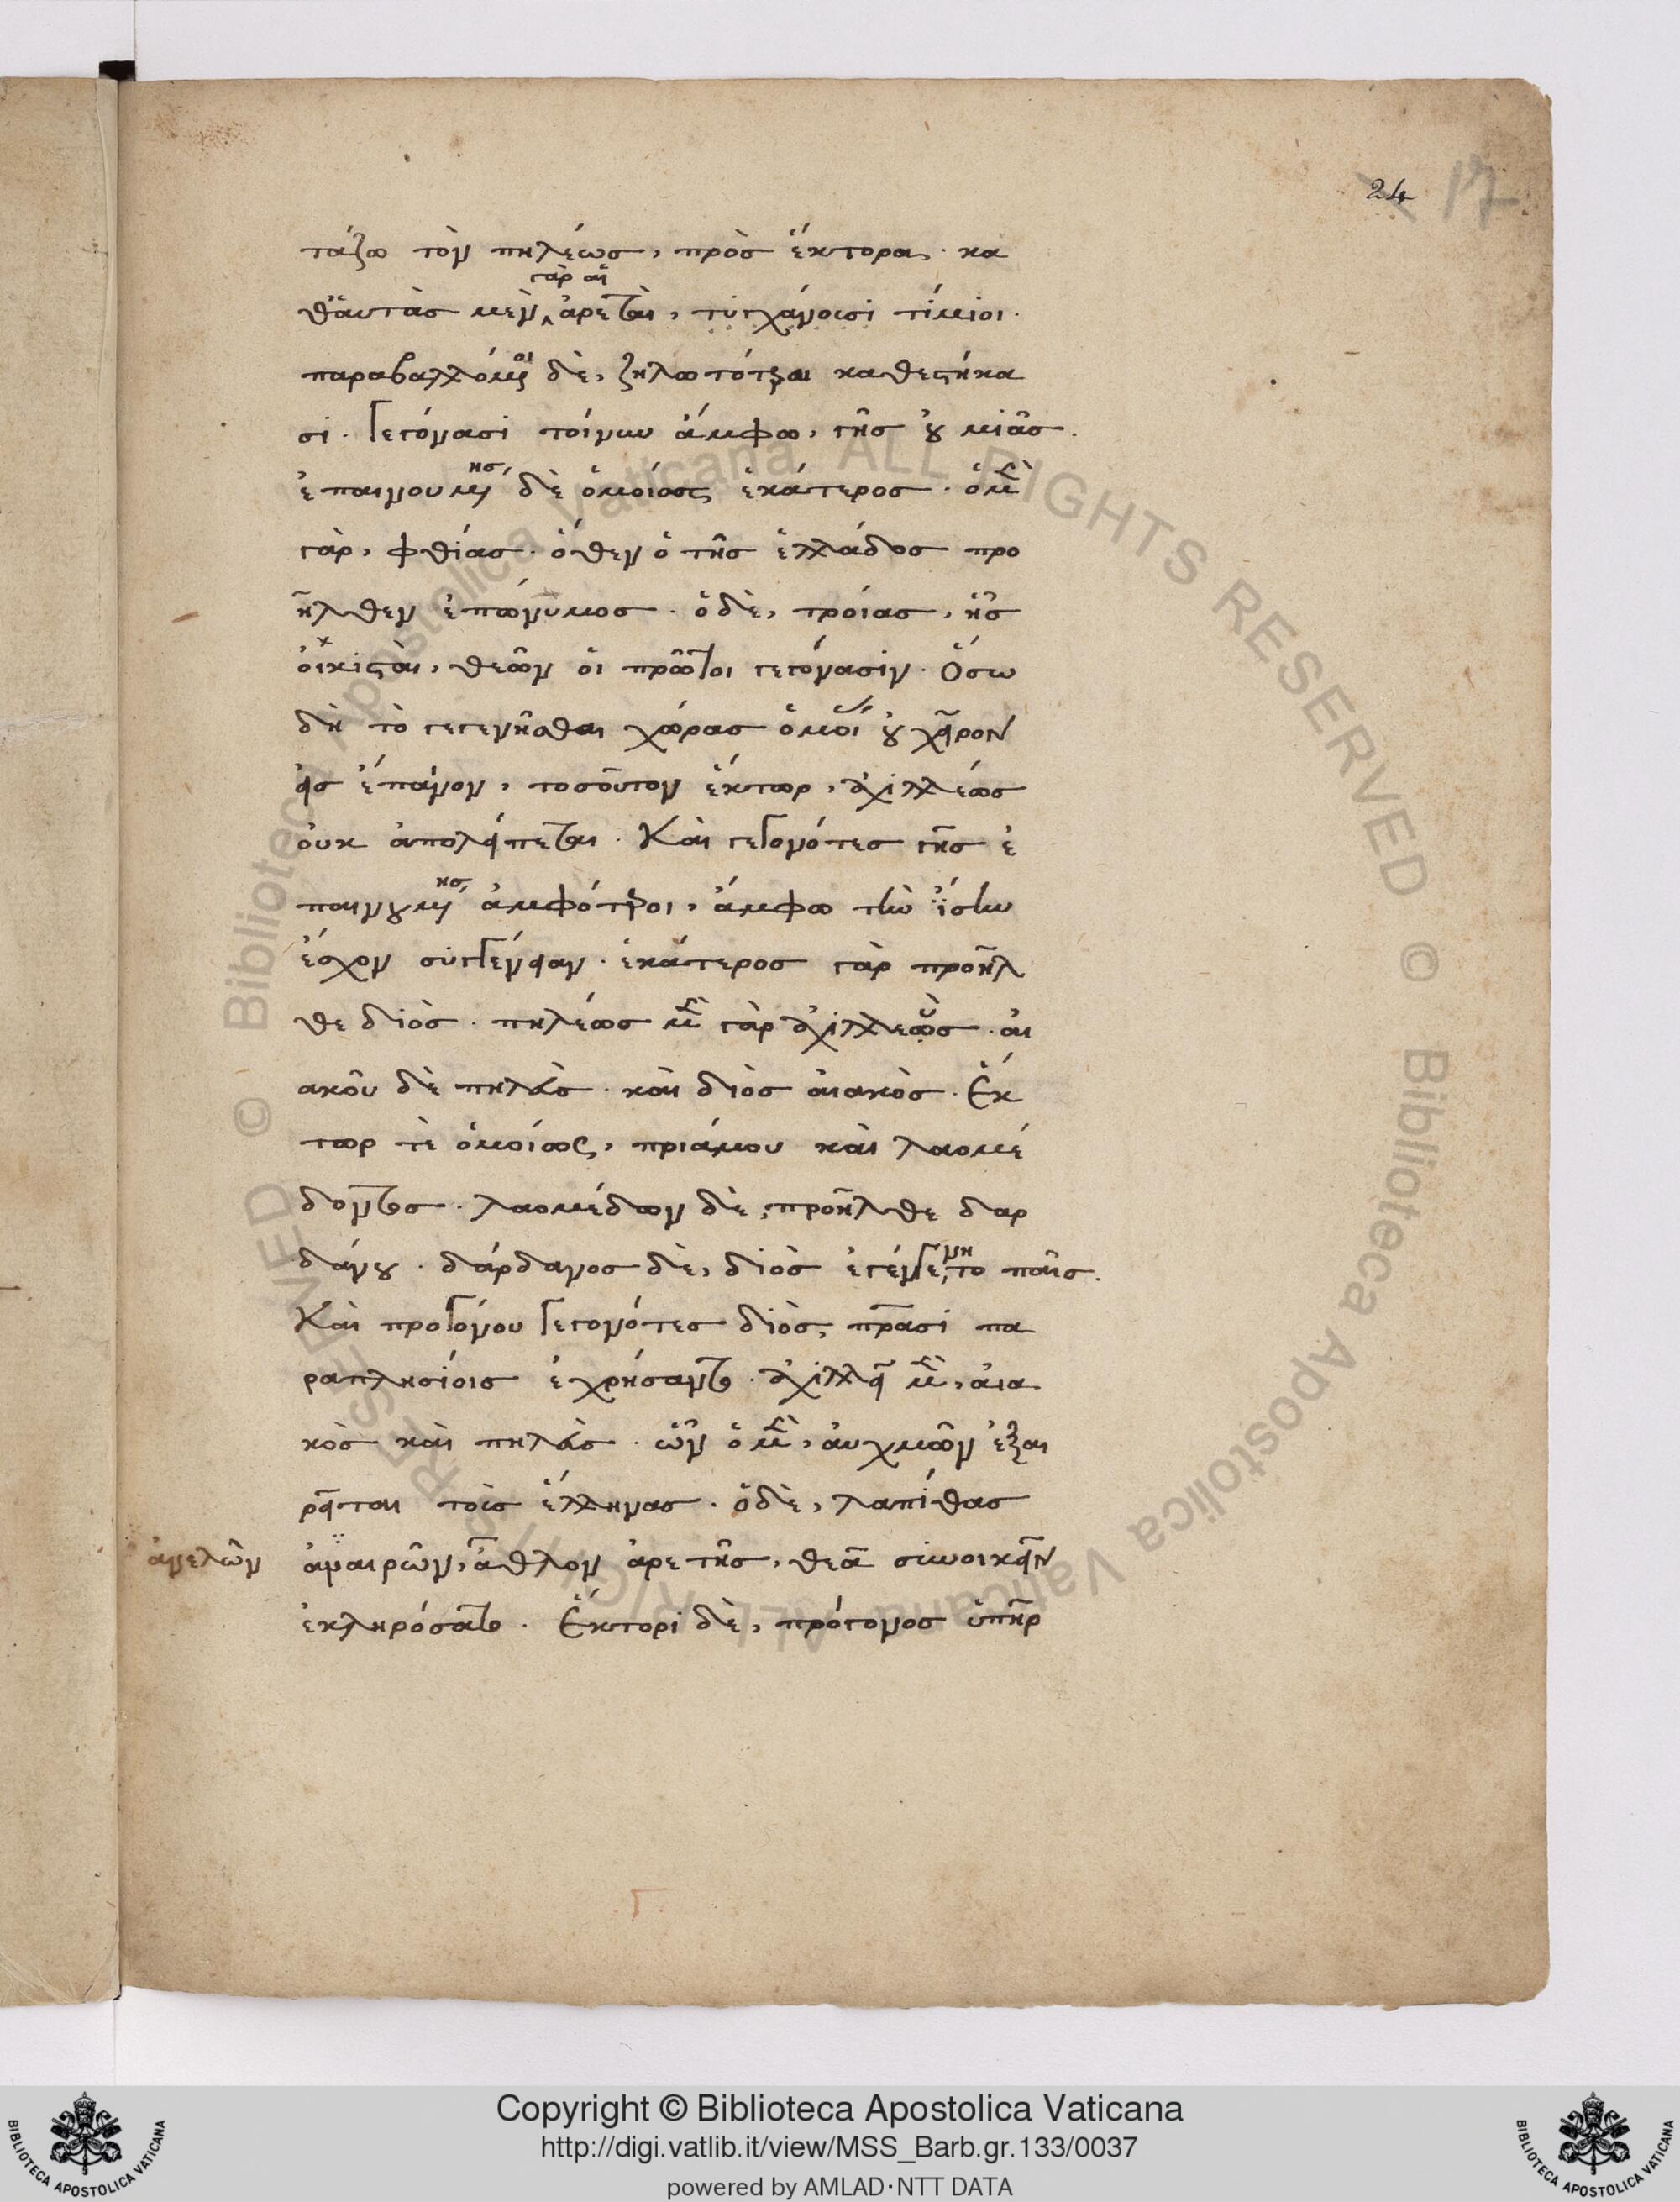 24 17
τάζω τὸν πηλέως, πρὸς ἕκτορα. κα
γὰρ αἱ
θ᾽ἁυτὰς μὲν ἀρεταὶ, τυγχάνουσι τίμιοι.
παραβαλλόμεναι δὲ, ζηλωτότεραι καθεστήκα
σι. Γεγόνασι τοίνυν ἄμφω, γῆς ὀυ μιᾶς.
ἐπαινουμένης δὲ ὁμοίως ἑκάτερος. ὁ μὲν
γὰρ, φθίας. ὅθεν ὁ τῆς ἑλλάδος προ
ῆλθεν ἐπώνυμος. ὁ δὲ, τροίας, ἧς
οἰκισταὶ, θεῶν ὁι πρῶτοι γεγόνασιν. Ὅσω
δὴ τὸ γεγενῆσθαι χώρας ὁμοί ὀυ χεῖρον
εἰς ἔπαινον, τοσοῦτον ἕκτωρ, ἀχιλλέως
ὀυκ ἀπολείπεται. Καὶ γεγονότες γῆς ἐ
παινουμένης ἀμφότεροι, ἄμφω τὴν ἴσην
ἔσχον συγγένειαν. ἑκάτερος γὰρ προῆλ
θε διός. πηλέως μὲν γὰρ ἀχιλλεὺς. ἀι
ακοῦ δὲ πηλεύς. καὶ διὸς ἀιακὸς. Ἕκ
τωρ τὲ ὁμοίως, πριάμου καὶ λαομέ
δοντος. λαομέδων δὲ, προῆλθε δαρ
δάνου. δάρδανος δὲ, διὸς ἐγένετο παῖς.
Καὶ προγόνου γεγονότες διὸς, πρασι πα
ραπλησίοις ἐχρήσαντο. ἀχιλλεῖ μὲν, ἀια
κὸς καὶ πηλεύς. ὧν ὁ μὲν, ἀυχμῶν ἐξαι
ρεῖται τοὺς ἕλληνας. ὁ δὲ, λαπίθας
ἀνελῶν
ἀναιρῶν, ἆθλον ἀρετῆς, θεᾶ συνοικεῖν
ἐκληρώσατο. Ἕκτορι δὲ, πρόγονος ὑπῆρ
Copyright © Biblioteca Apostolica Vaticana
http://digi.vatlib.it/view/MSS_Barb.gr.133/0037
powered by AMLAD·NTT DATA
© Biblioteca Apostolica Vaticana ALL RIGHTS RESERVED © Biblioteca Apostolica Vaticana ALL RIGHTS RESERVED
BIBLIOTECA APOSTOLICA VATICANA
BIBLIOTECA APOSTOLICA VATICANA